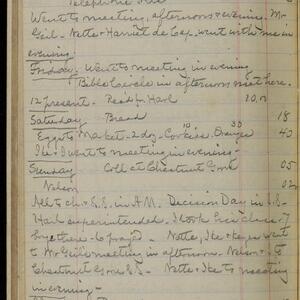 Telephone
Went to meeting, afternoon & evening. Mr
Geil - Nette & Harriet de Coy went with me in
evening.
Friday. Went to meeting in evening
Bible Circle in afternoon met here.
12 present. Paid for Harl 10.00
Saturday Bread 18
Eggs to Market - 2 doz - Cookies 10 Oranges 30 40
Ike & I went to meeting in evening -
Sunday Coll at Chestnut Grove 05
Nelson 02
All to ch & S.S. in A.M. Decision Day in S.S.
Harl superintended. I took his class. 7
boys there - to prayed - Nette, Ike & went
to Mr Geil's meeting in afternoon. Nelson & to
Chestnut Grove S.S. - Nette & Ike to meeting
in evening -